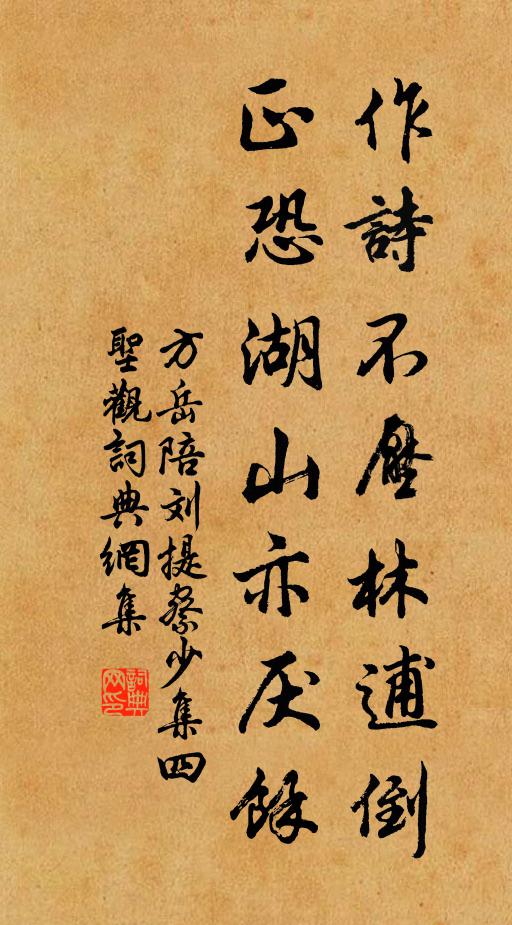 作詩不壓林逋倒
正恐湖山亦厌餘
方岳陪刘提察少集四
聖觀詞典網集
詞典网印